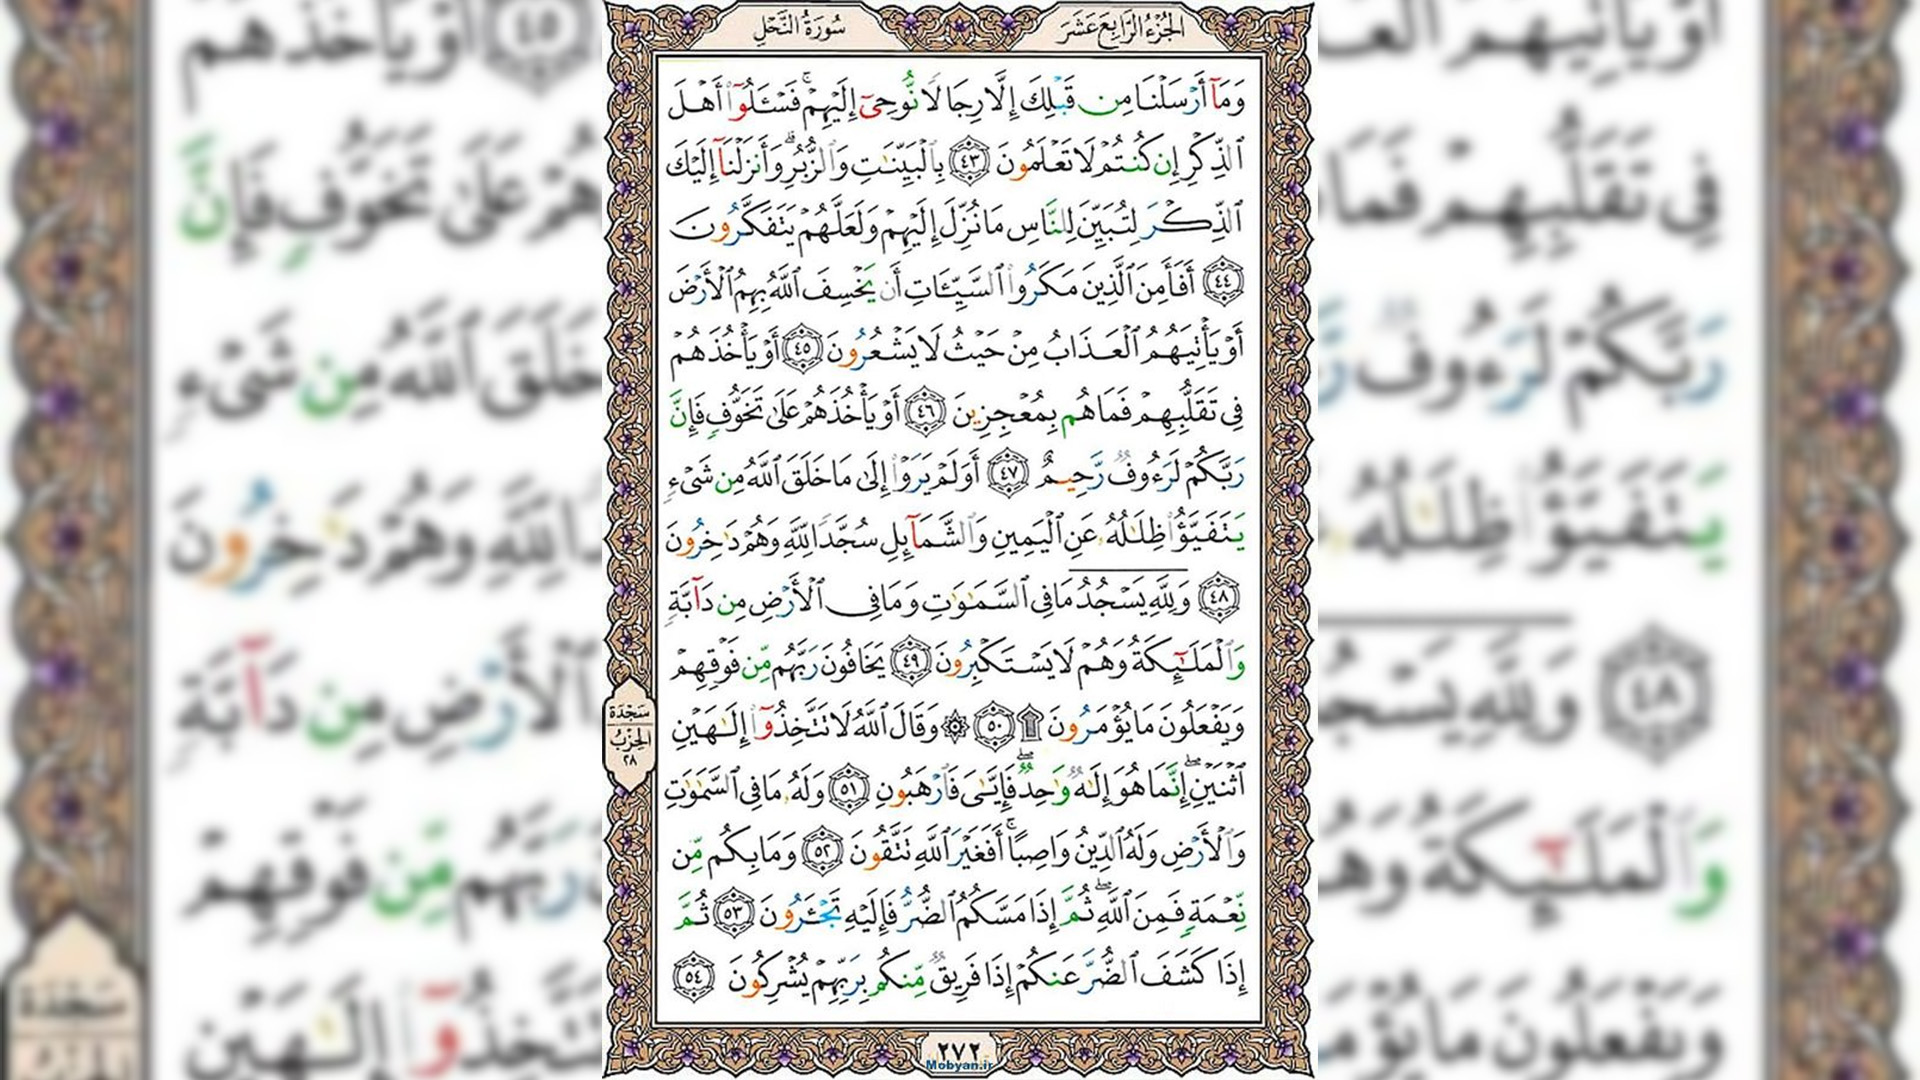 الجُزْءُ الرَّابِعَ عَشَرَ
سُورَةُ النَّحْلِ
وَمَآ أَرْسَلْنَا مِن قَبْلِكَ إِلَّا رِجَالًا نُّوحِىٓ إِلَيْهِمْ ۚ فَسْـَٔلُوٓا۟ أَهْلَ
ٱلذِّكْرِ إِن كُنتُمْ لَا تَعْلَمُونَ ٤٣ بِٱلْبَيِّنَـٰتِ وَٱلزُّبُرِ ۗ وَأَنزَلْنَآ إِلَيْكَ
ٱلذِّكْرَ لِتُبَيِّنَ لِلنَّاسِ مَا نُزِّلَ إِلَيْهِمْ وَلَعَلَّهُمْ يَتَفَكَّرُونَ
٤٤ أَفَأَمِنَ ٱلَّذِينَ مَكَرُوا۟ ٱلسَّيِّـَٔاتِ أَن يَخْسِفَ ٱللَّهُ بِهِمُ ٱلْأَرْضَ
أَوْ يَأْتِيَهُمُ ٱلْعَذَابُ مِنْ حَيْثُ لَا يَشْعُرُونَ ٤٥ أَوْ يَأْخُذَهُمْ
فِى تَقَلُّبِهِمْ فَمَا هُم بِمُعْجِزِينَ ٤٦ أَوْ يَأْخُذَهُمْ عَلَىٰ تَخَوُّفٍ فَإِنَّ
رَبَّكُمْ لَرَءُوفٌ رَّحِيمٌ ٤٧ أَوَلَمْ يَرَوْا۟ إِلَىٰ مَا خَلَقَ ٱللَّهُ مِن شَىْءٍ
يَتَفَيَّؤُا۟ ظِلَـٰلُهُۥ عَنِ ٱلْيَمِينِ وَٱلشَّمَآئِلِ سُجَّدًا لِّلَّهِ وَهُمْ دَٰخِرُونَ
٤٨ وَلِلَّهِ يَسْجُدُ مَا فِى ٱلسَّمَـٰوَٰتِ وَمَا فِى ٱلْأَرْضِ مِن دَآبَّةٍ
وَٱلْمَلَـٰٓئِكَةُ وَهُمْ لَا يَسْتَكْبِرُونَ ٤٩ يَخَافُونَ رَبَّهُم مِّن فَوْقِهِمْ
وَيَفْعَلُونَ مَا يُؤْمَرُونَ ۩ ٥٠ ۞ وَقَالَ ٱللَّهُ لَا تَتَّخِذُوٓا۟ إِلَـٰهَيْنِ
ٱثْنَيْنِ ۖ إِنَّمَا هُوَ إِلَـٰهٌ وَٰحِدٌ ۖ فَإِيَّـٰىَ فَٱرْهَبُونِ ٥١ وَلَهُۥ مَا فِى ٱلسَّمَـٰوَٰتِ
وَٱلْأَرْضِ وَلَهُ ٱلدِّينُ وَاصِبًا ۚ أَفَغَيْرَ ٱللَّهِ تَتَّقُونَ ٥٢ وَمَا بِكُم مِّن
نِّعْمَةٍ فَمِنَ ٱللَّهِ ۖ ثُمَّ إِذَا مَسَّكُمُ ٱلضُّرُّ فَإِلَيْهِ تَجْـَٔرُونَ ٥٣ ثُمَّ
إِذَا كَشَفَ ٱلضُّرَّ عَنكُمْ إِذَا فَرِيقٌ مِّنكُم بِرَبِّهِمْ يُشْرِكُونَ ٥٤
سَجْدَة
الحِزْبُ
٢٨
٢٧٢
Mobyan.ir